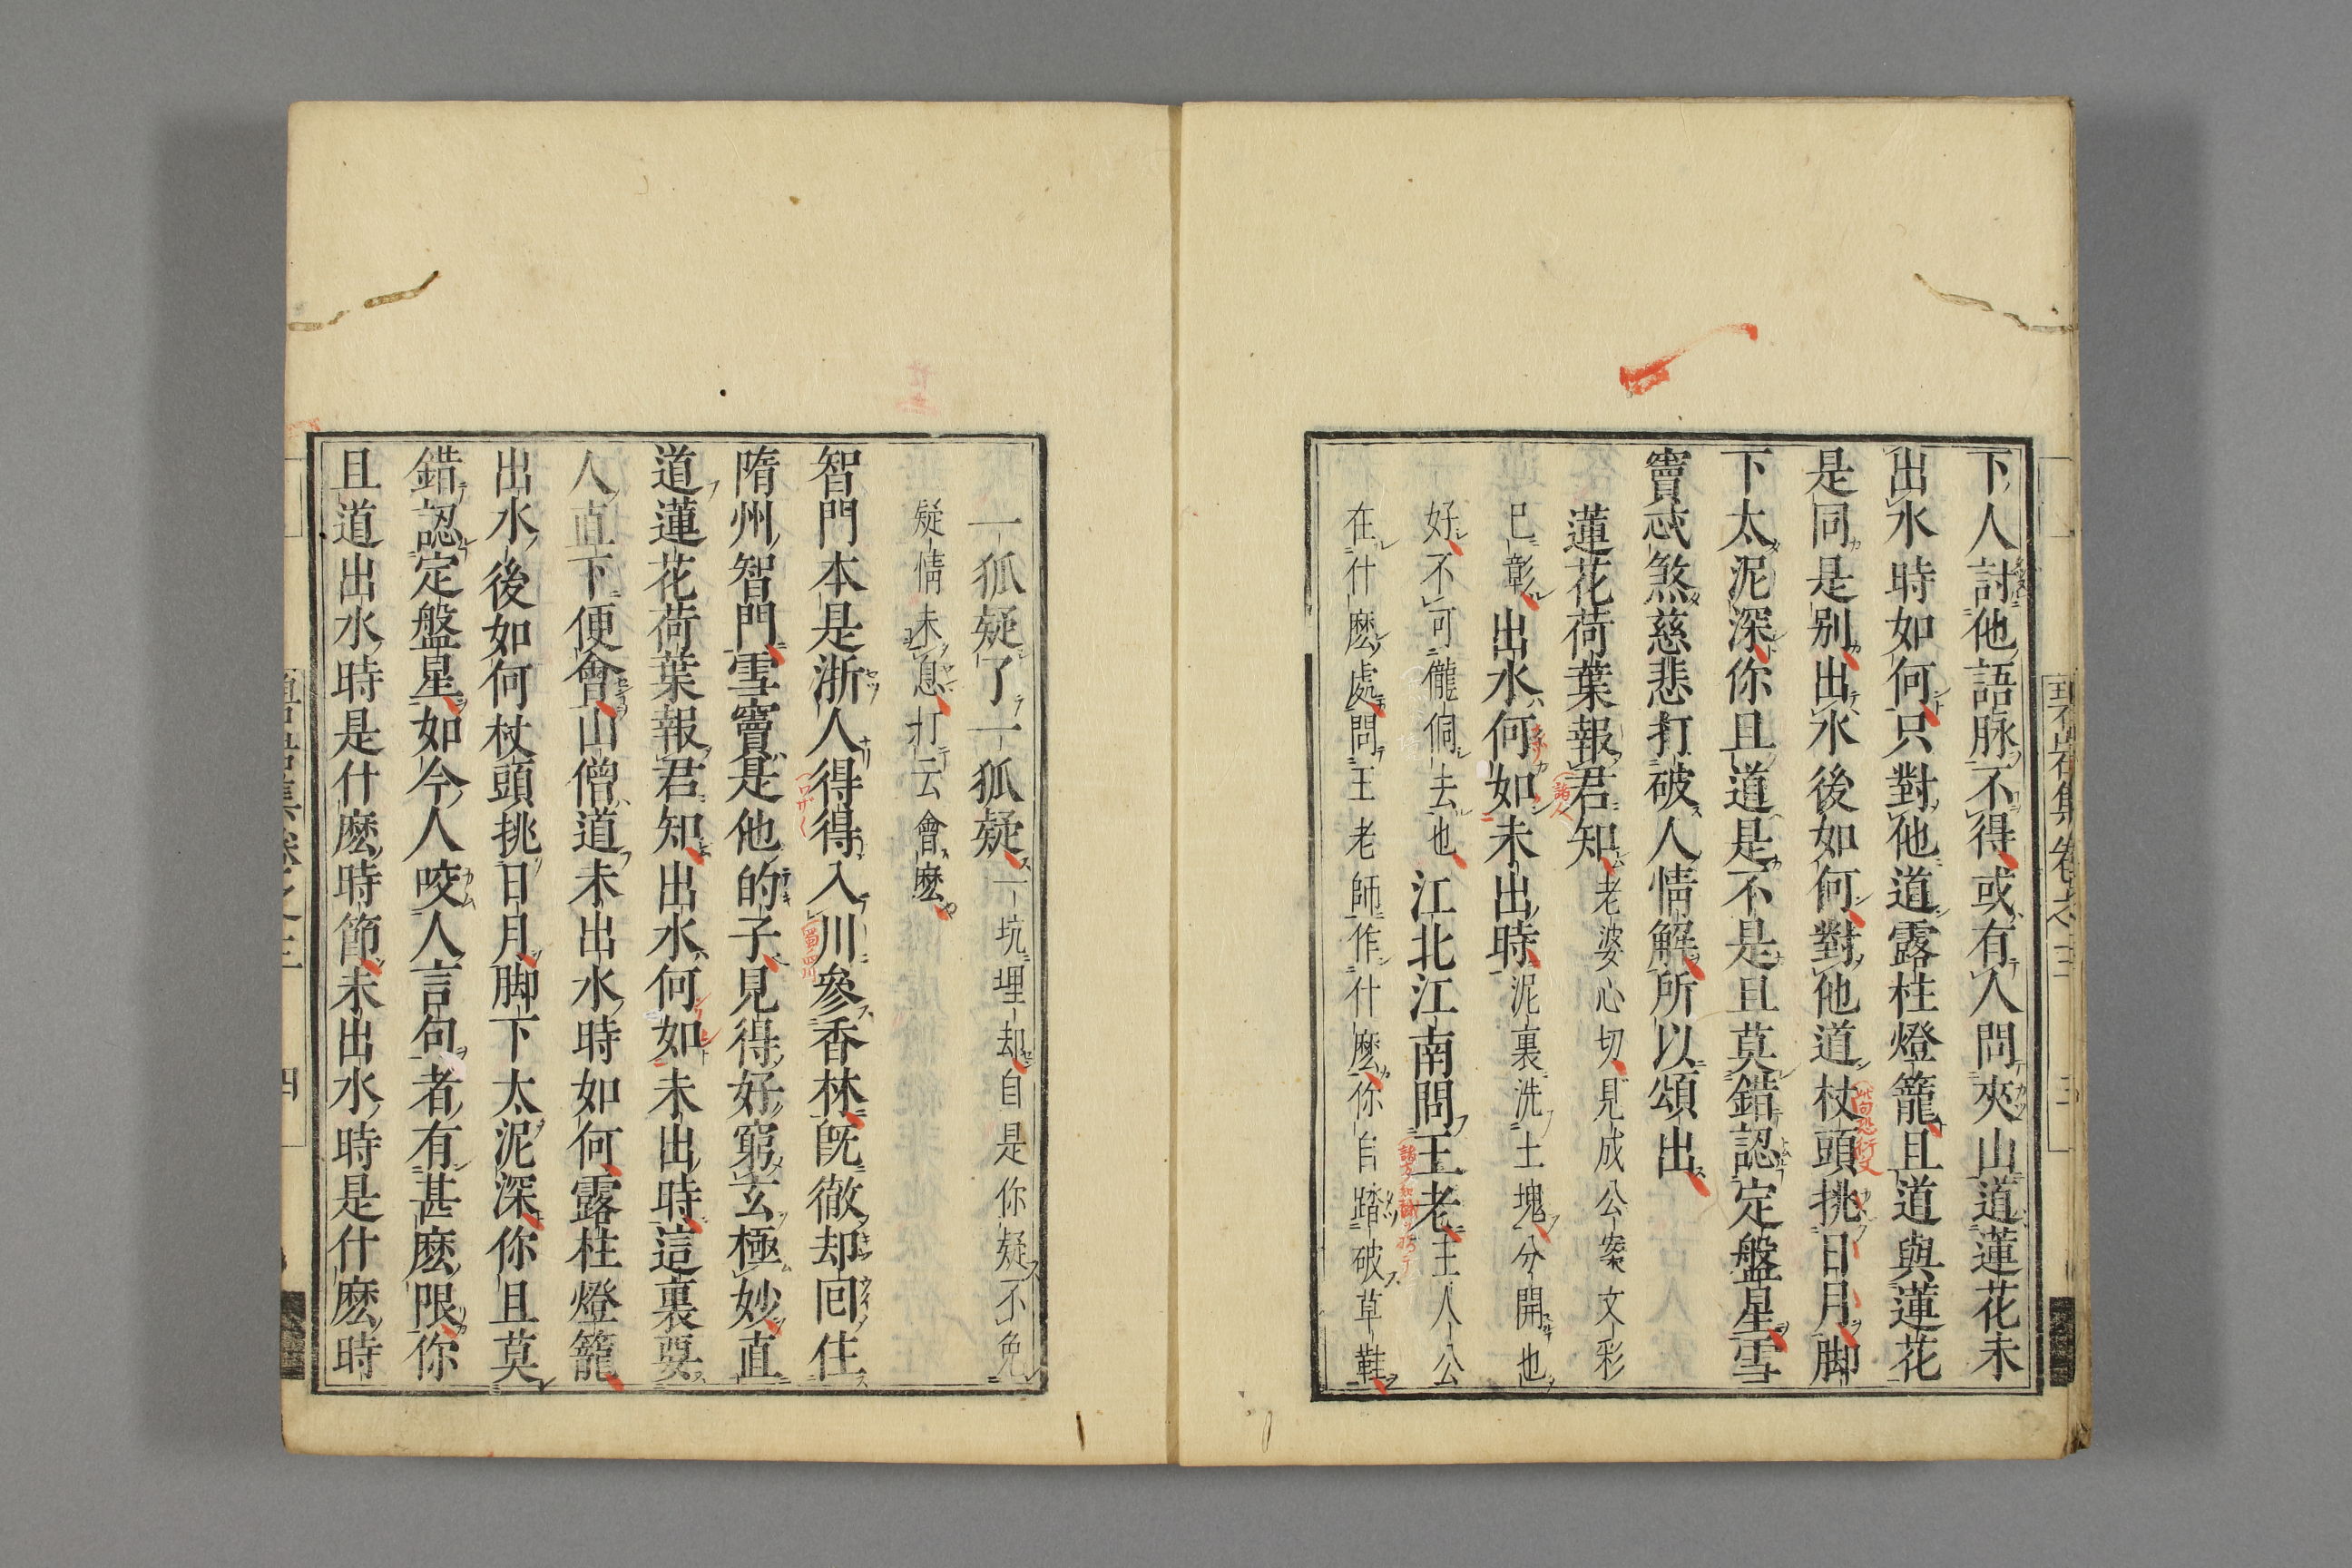 下人討他語脉不得或有人問夾山道蓮花未
出水時如何只對他道露柱燈籠且道與蓮花
是同是別出水後如何對他道杖頭挑日月脚
下太泥深你且道是不是且莫錯認定盤星雪
竇忒煞慈悲打破人情解所以頌出
蓮花荷葉報君知老婆心切見成公案文彩
已彰出水何如未出時泥裏洗土塊分開也
好不可儱侗去也江北江南問王老主人公
在什麽處問王老師作什麽你自踏破草鞋
碧岩集卷之三
三
一狐疑了一狐疑一坑埋却自是你疑不免
疑情未息打云會麽
智門本是浙人得得入川參香林既徹却囘住
隋州智門雪竇是他的子見得好窮玄極妙直
道蓮花荷葉報君知出水何如未出時這裏要
人直下便會山僧道未出水時如何露柱燈籠
出水後如何杖頭挑日月脚下太泥深你且莫
錯認定盤星如今人咬人言句者有甚麽限你
且道出水時是什麽時節未出水時是什麽時
四